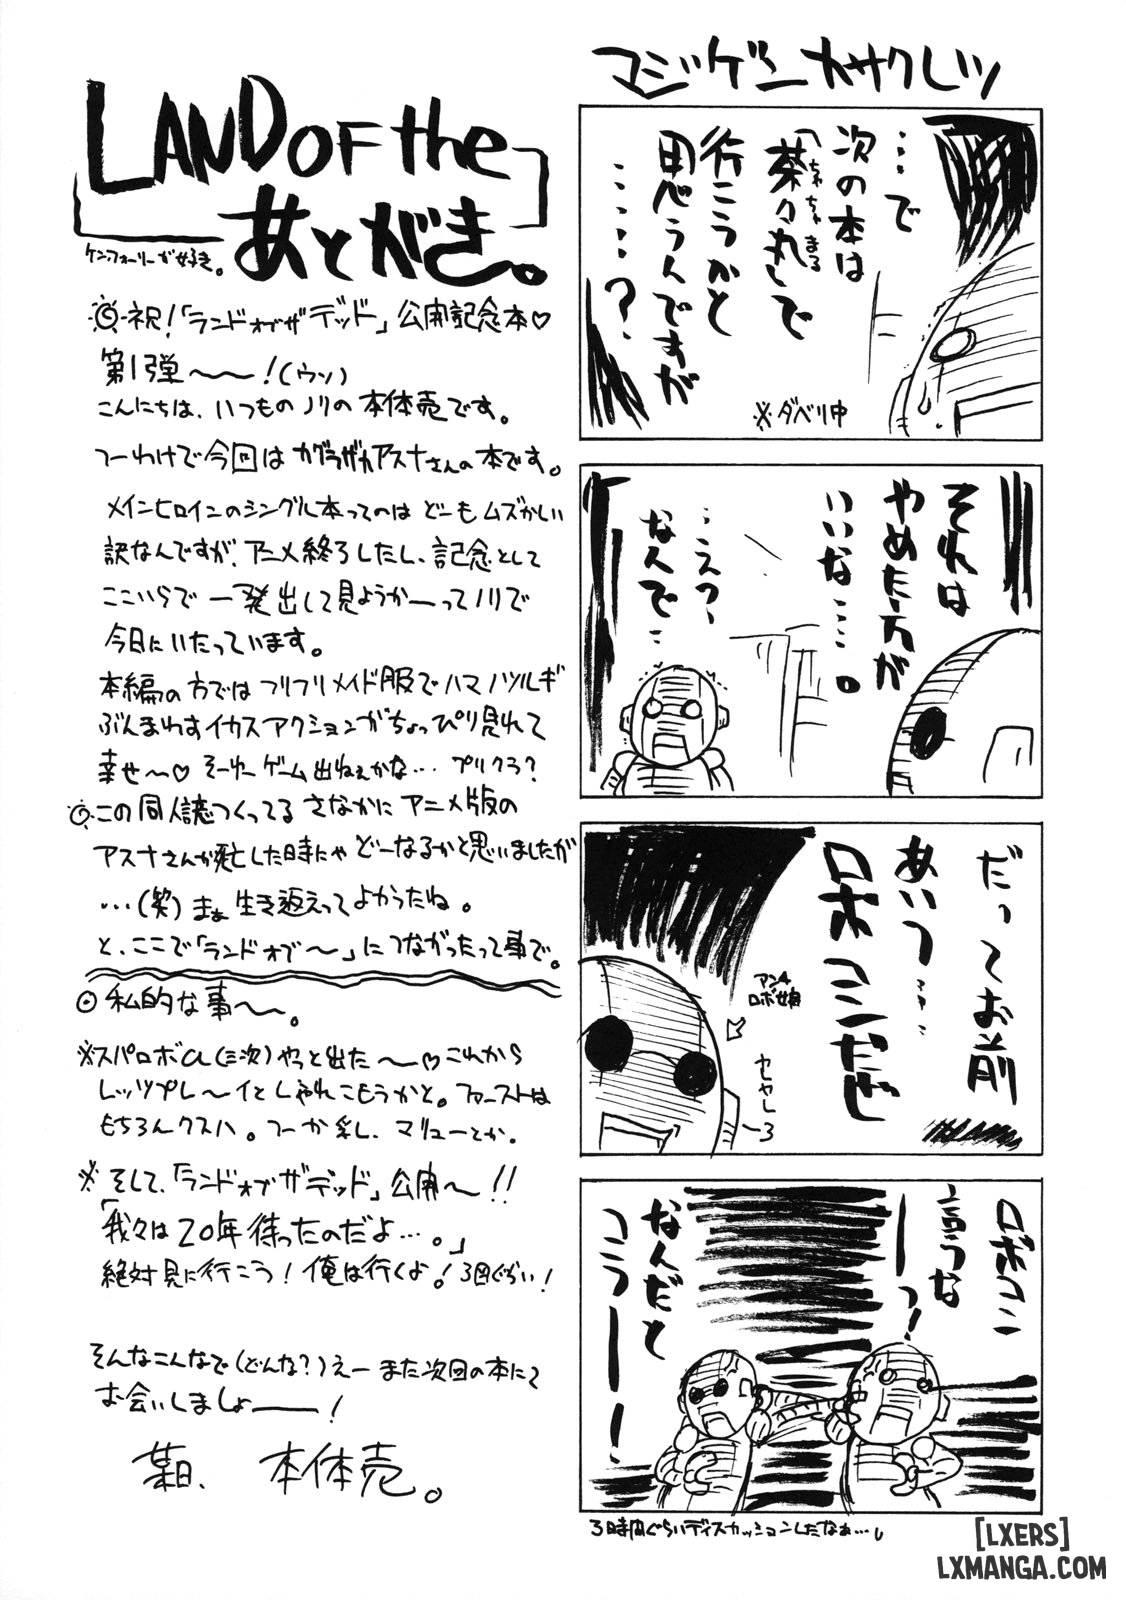 LAND OF the
あとがき。
ケン・フォーリーが好き。
◎祝！「ランドオブザデッド」公開記念本♡
第1弾〜〜！(ウソ)
こんにちは、いつものノリの本体売です。
つーわけで今回はカグラザカアスナさんの本です。
メインヒロインのシングル本ってのはどーもムズかしい
訳なんですが、アニメ終了したし、記念として
ここいらで一発出して見ようかーってノリで
今日にいたっています。
本編の方ではフリフリメイド服でハマノツルギ
ぶんまわすイカスアクションがちょっぴり見れて
幸せ〜♡そーゆーゲーム出ねぇかな…プリクラ？
◎この同人誌つくってるさなかにアニメ版の
アスナさんが死亡した時にゃどーなるかと思いましたが
…(笑)まぁ生き返えってよかったね。
と、ここで「ランドオブ〜」につながったって事で。
◎私的な事〜〜。
※スパロボα(三次)やっと出た〜〜♡これから
レッツプレ〜イとしゃれこもうかと。ファーストは
もちろんクスハ。つーか乳、マリューとか。
※そして、「ランドオブザデッド」公開〜！！
「我々は20年待ったのだよ…。」
絶対見に行こう！俺は行くよ！3回ぐらい！
そんなこんなで(どんな？)えーまた次回の本にて
お会いしましょ――！
某日、本体売。
マジゲンカサクレツ
…で
次の本は
「茶々丸」で
ちゃちゃまる
行こうかと
思うんですが
……？
※ダベリ中
それは
やめた方が
いいな…。
…えっ、
なんで…
だってお前
あいつ…
ロボコンだぜ
アンチ
ロボ娘
カセヤしーろ
ロボコン
言うな
ーっ！
なんだと
コラーーー！
3時間ぐらいディスカッションしたなぁ…し
[LXERS]
LXMANGA.COM